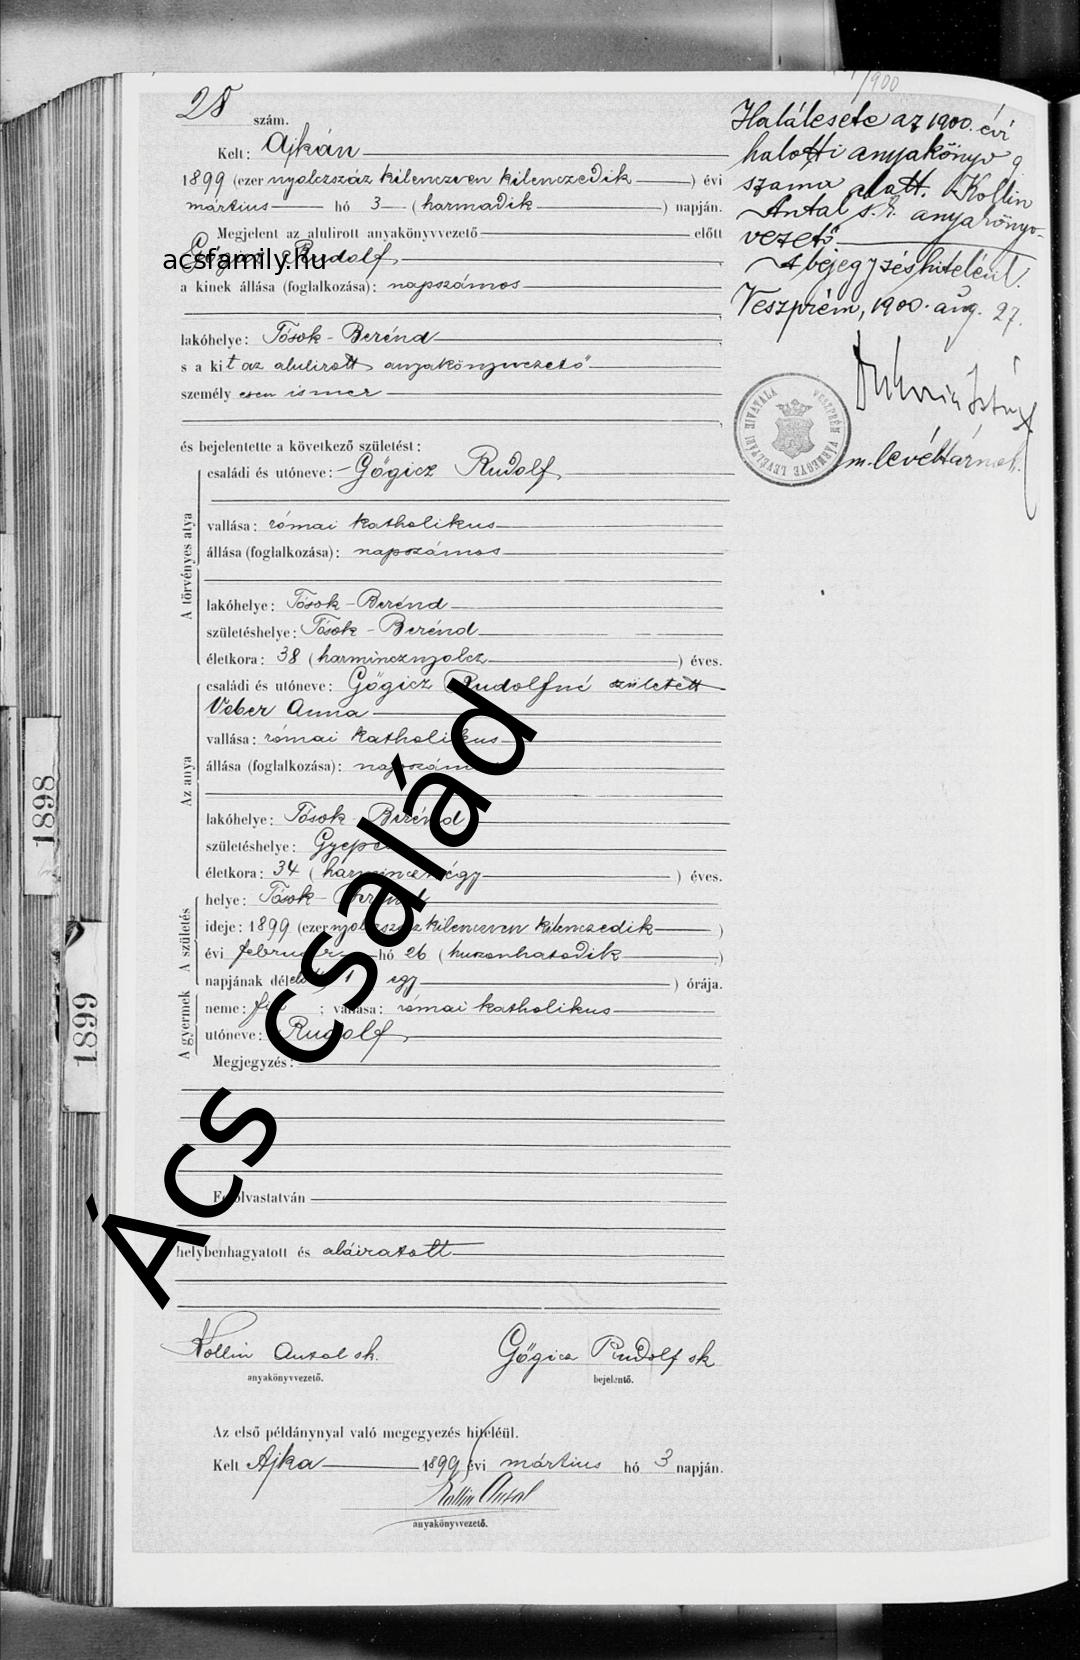 28 szám.
Kelt: Ajkán
1899 (ezer nyolczszáz kilenczven kilenczedik) évi
március hó 3 (harmadik) napján.
Megjelent az alulirott anyakönyvvezető előtt
Gőgicz Rudolf
acsfamily.hu
a kinek állása (foglalkozása): napszámos
lakóhelye: Tósok-Berénd
s a kit az alulirott anyakönyvvezető
személyesen ismer
és bejelentette a következő születést:
A törvényes atya
családi és utóneve: Gőgicz Rudolf
vallása: római katholikus
állása (foglalkozása): napszámos
lakóhelye: Tósok-Berénd
születéshelye: Tósok-Berénd
életkora: 38 (harmincznyolcz) éves.
Az anya
családi és utóneve: Gőgicz Rudolfné született
Veber Anna
vallása: római katholikus
állása (foglalkozása):
lakóhelye: Tósok-Berénd
születéshelye:
életkora: 34 (harmincznégy) éves.
A születés
helye: Tósok-Berénd
ideje: 1899 (ezer nyolczszáz kilenczven kilenczedik)
évi február hó 26 (huszonhatodik)
napjának délelőtt 1 egy órája.
A gyermek
neme: fiú; vallása: római katholikus
utóneve: Rudolf
Megjegyzés:
Felolvastatván
helybenhagyatott és aláiratott
Kollin Antal sk.
anyakönyvvezető.
Gőgicz Rudolf sk
bejelentő.
Az első példánynyal való megegyezés hiteléül.
Kelt Ajka 1899 évi március hó 3 napján.
Kollin Antal
anyakönyvvezető.
/900
Halálesete az 1900. évi
halotti anyakönyv 9
száma alatt. Kollin
Antal s.k. anyakönyv-
vezető
A bejegyzés hiteléül.
Veszprém, 1900. aug. 27.
VESZPRÉM VÁRMEGYE LEVÉLTÁRI HIVATALA
m. levéltárnok.
1898
1899
Ács család